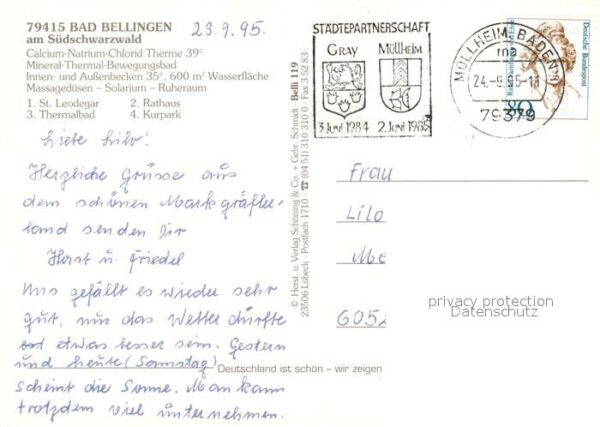 79415 BAD BELLINGEN
am Südschwarzwald
Calcium-Natrium-Chlorid Therme 39°
Mineral-Thermal-Bewegungsbad
Innen- und Außenbecken 35°, 600 m² Wasserfläche
Massagedüsen – Solarium – Ruheraum
1. St. Leodegar 2. Rathaus
3. Thermalbad 4. Kurpark
23.9.95.
Liebe Lilo!
Herzliche Grüsse aus
dem schönen Markgräfler-
land senden Dir
Horst u. Friedel
Uns gefällt es wieder sehr
gut, nur das Wetter dürfte
etwas besser sein. Gestern
und heute (Samstag)
scheint die Sonne. Man kann
trotzdem viel unternehmen.
© Herst. u. Verlag Schöning & Co. + Gebr. Schmidt Belli 119
23506 Lübeck · Postfach 1710 ☎ (04 51) 310 310 · Fax 3 52 83
Deutschland ist schön – wir zeigen
STÄDTEPARTNERSCHAFT
GRAY MÜLLHEIM
3. Juni 1984 2. Juni 1985
MÜLLHEIM, BADEN 1
ma
24.-9.95-18
79379
Deutsche Bundespost
80
Frau
Lilo
Me
6052
privacy protection
Datenschutz